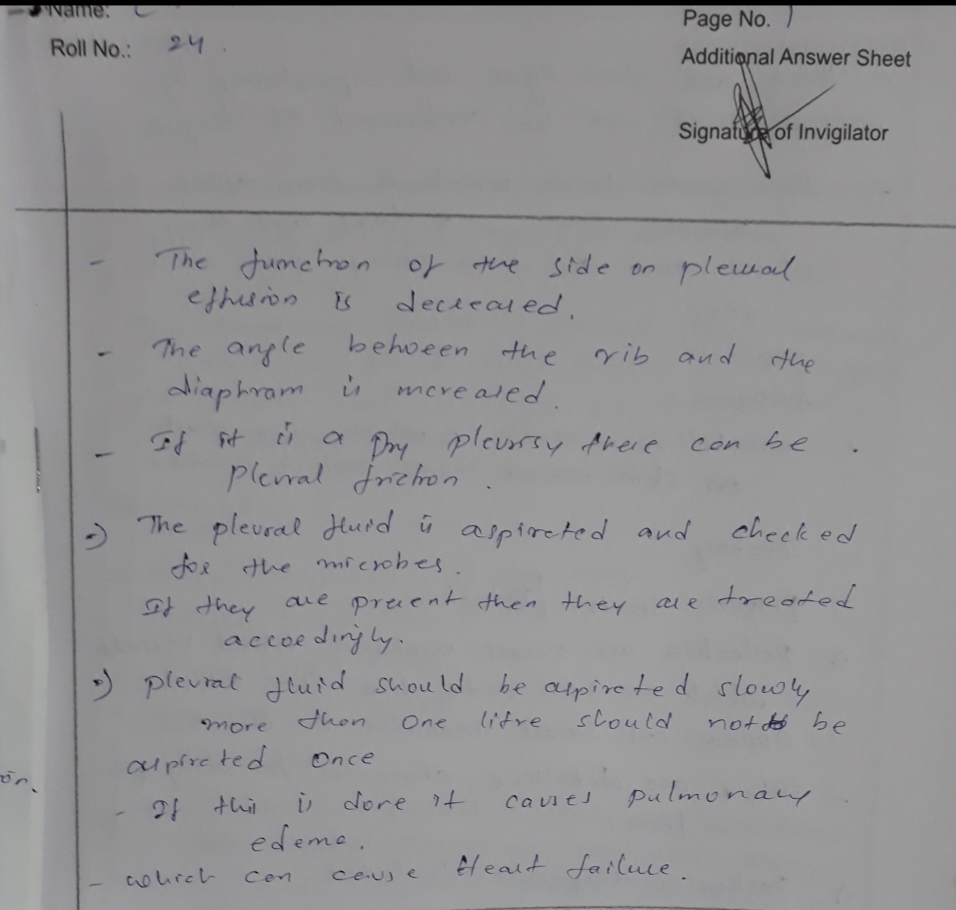 Name:
Page No. 1
Roll No.: 24.
Additional Answer Sheet
Signature of Invigilator
- The function of the side on pleural
effusion is decreased.
- The angle between the rib and the
diaphram is increased.
- If it is a Dry pleurisy there can be
Plevral friction.
=) The plevral fluid is aspireted and checked
for the microbes.
If they are present then they are treated
accoedingly.
=) plevral fluid should be aspireted slowly
more then one litre should not be
aspireted once
on.
- If this is done it causes pulmonary
edema.
- which can cause Heart failure.